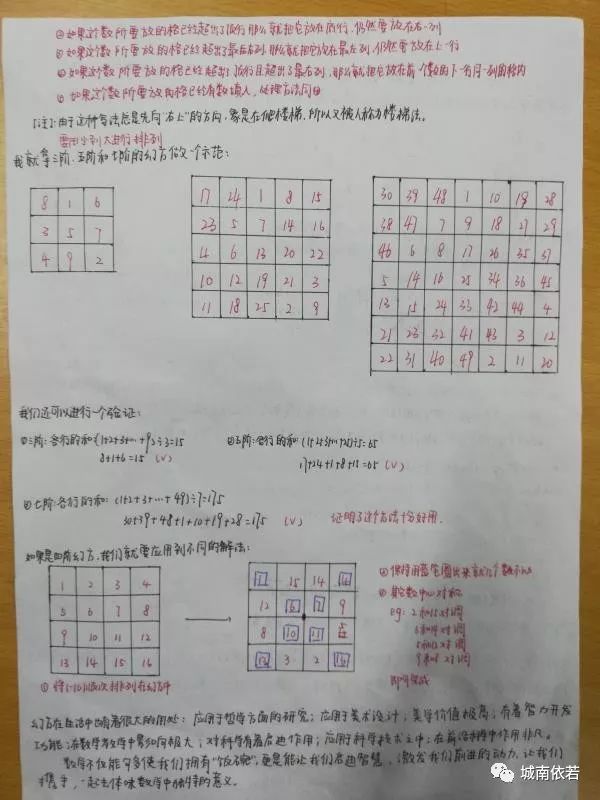 ②如果这个数所要放的格已经超出了顶行那么就把它放在底行,仍然要放在右一列
③如果这个数所要放的格已经超出了最右列,那么就把它放在最左列,仍然要放在上一行
④如果这个数所要放的格已经超出了顶行且超出了最右列,那么就把它放在前一个数的下一行同一列的格内
⑤如果这个数所要放的格已经有数填入,处理方法同④
[注]:由于这种方法总是先向“右上”的方向,象是在爬楼梯,所以又被人称为楼梯法。
要由小到大进行排列
我就拿三阶、五阶和七阶的幻方做一个示范:
8 1 6
3 5 7
4 9 2
17 24 1 8 15
23 5 7 14 16
4 6 13 20 22
10 12 19 21 3
11 18 25 2 9
30 39 48 1 10 19 28
38 47 7 9 18 27 29
46 6 8 17 26 35 37
5 14 16 25 34 36 45
13 15 24 33 42 44 4
21 23 32 41 43 3 12
22 31 40 49 2 11 20
我们还可以进行一个验证:
①三阶:各行的和(1+2+3+…+9)÷3=15
8+1+6=15 (√)
②五阶:各行的和
÷5=65
17+24+1+8+15=65 (√)
③七阶:各行的和:(1+2+3+…+49)÷7=175
30+39+48+1+10+19+28=175 (√) 证明了这个方法十分好用.
如果是四阶幻方,我们就要应用到不同的解法:
1 2 3 4
5 6 7 8
9 10 11 12
13 14 15 16
①将1~16依次排列在幻方中
15 14
12 6 7 9
8 10
3 2
②保持用蓝笔圈出来的几个数不动
③其它数中心对称
eg: 2和15对调
3和14对调
5和12对调
9和8对调
即可完成
幻方在生活中也有着很大的用处:应用于哲学方面的研究;应用于美术设计;美学价值极高;有着智力开发
功能;在数学教学中
极大;对科学有着启迪作用;应用于科学技术之中;在前沿科学中作用非凡。
数学不仅能够使我们拥有“饭碗”,更是能让我们启迪智慧,激发我们前进的动力,让我们
携手,一起去体味数学中独特的意义。
城南依若